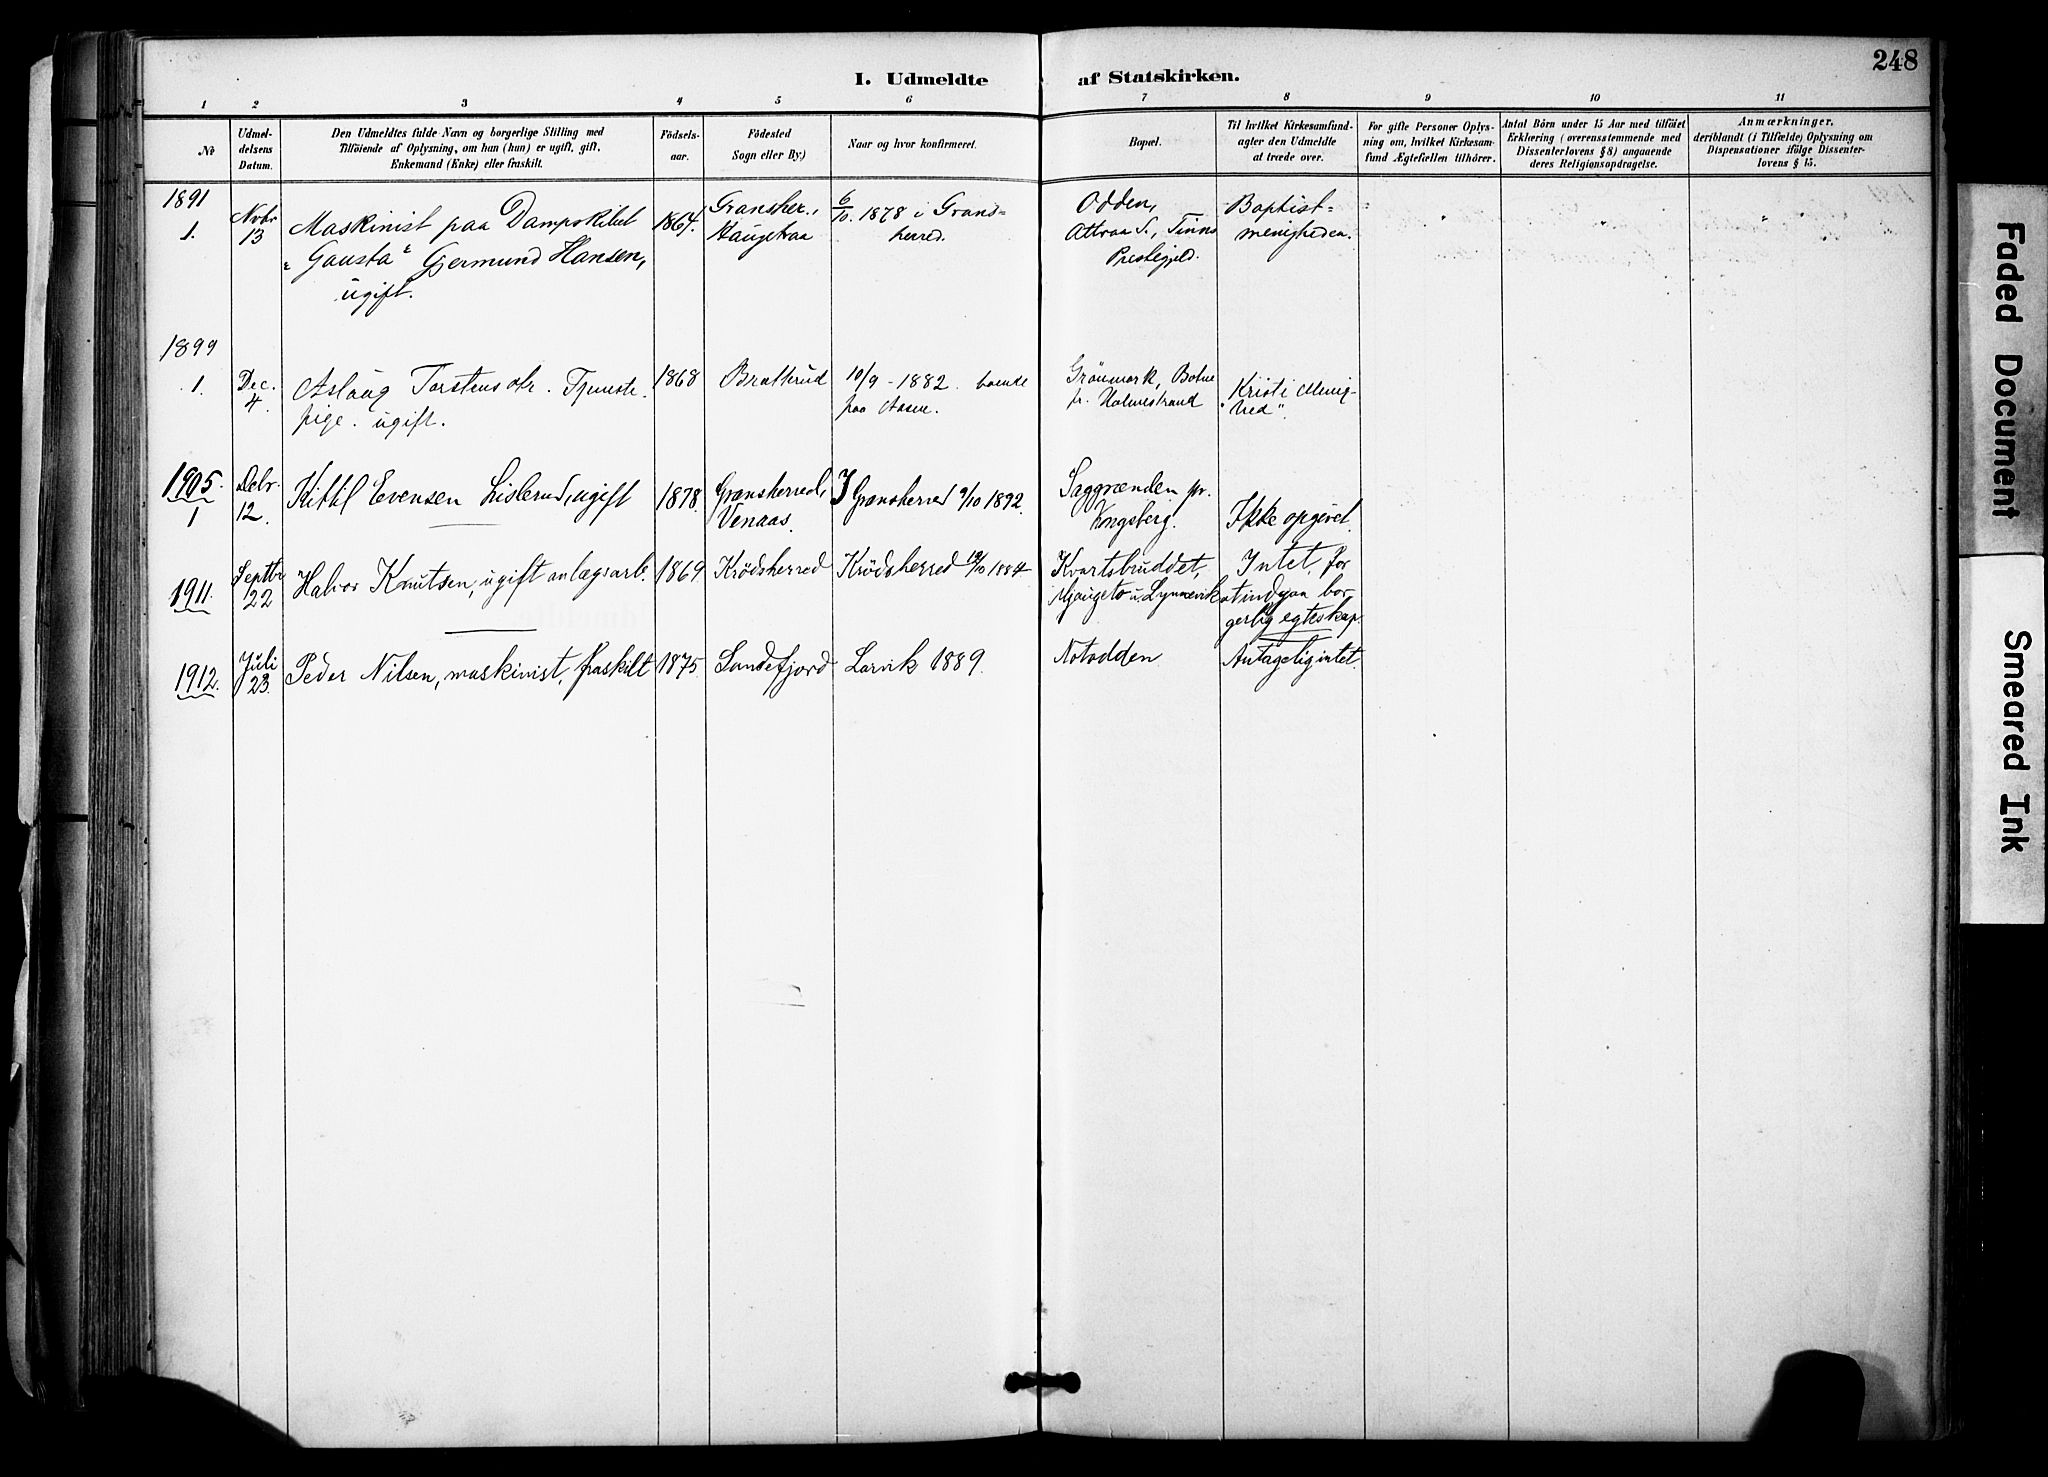 248
I. Udmeldte af Statskirken.
1 2 3 4 5 6 7 8 9 10 11
No
Udmel-
delsens
Datum.
Den Udmeldtes fulde Navn og borgerlige Stilling med
Tilföiende af Oplysning, om han (hun) er ugift, gift,
Enkemand (Enke) eller fraskilt.
Födsels-
aar.
Födested
Sogn eller By.)
Naar og hvor konfirmeret.
Bopæl.
Til hvilket Kirkesamfund-
agter den Udmeldte
at træde over.
For gifte Personer Oplys-
ning om, hvilket Kirkesam-
fund Ægtefællen tilhörer.
Antal Börn under 15 Aar med tilföiet
Erklæring (overensstemmende med
Dissenterlovens § 8) angaaende
deres Religionsopdragelse.
Anmærkninger,
deriblandt (i Tilfælde) Oplysning om
Dispensationer ifölge Dissenter-
lovens § 15.
1891
1.
Novbr
13
Maskinist paa Dampskibet
"Gausta" Gjermund Hansen,
ugift.
1864.
Gransher.,
Haugetraa
6/10. 1878 i Grans=
herred.
Odden,
Attraa S., Tinns
Prestegjeld.
Baptist=
menigheden.
1899
1.
Dec.
4.
Aslaug Torstensdtr. Tjeneste.
pige. ugift.
1868
Bratterud
10/9 - 1882. boende
paa Aasen.
Grönmark, Botne
pr. Holmestrand
"Kristi Menig-
hed".
1905.
1
Debr.
12.
Kittil Evensen Lislerud, ugift
1878.
Gransherred,
Venaas.
I Gransherred 9/10 1892.
Saggrænden pr.
Kongsberg.
Ikke opgivet.
1911.
Septbr
22
Halvor Knutsen, ugift anlægsarb.
1869
Krödsherred
Krödsherred 12/10 1884
Kvartsbruddet,
u. Lynnevik
Intet, for
at indgaa bor-
gerlig egteskap.
1912.
Juli
23.
Peder Nilsen, maskinist, fraskilt
1875.
Sandefjord
Larvik 1889.
Notodden
Antagelig intet.
Faded Document
Smeared Ink